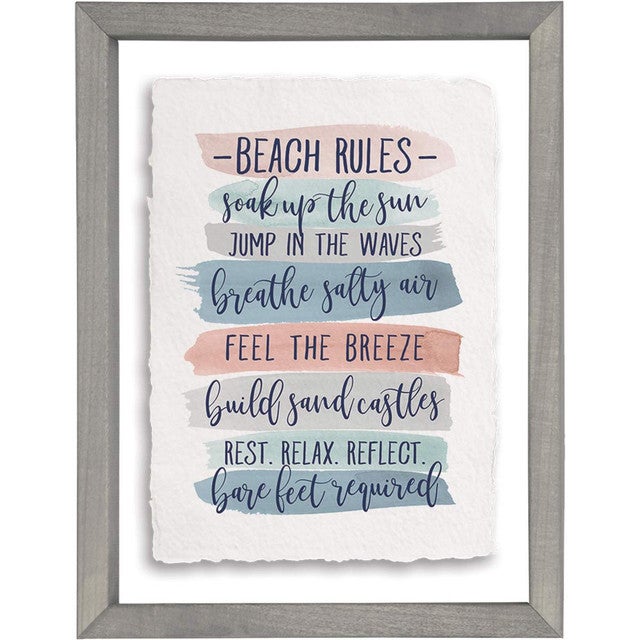 –BEACH RULES–
soak up the sun
JUMP IN THE WAVES
breathe salty air
FEEL THE BREEZE
build sand castles
REST. RELAX. REFLECT.
bare feet required